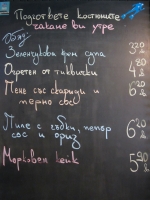 Подгответе костюмите
чакаме ви утре
Обяд:
Зеленчукова крем супа 3.20
Огретен от тиквички 4.80
Пене със скариди и 6.20
черно
Пиле с гъби, пипер 6.20
сос и ориз
Морковен кейк 5.20